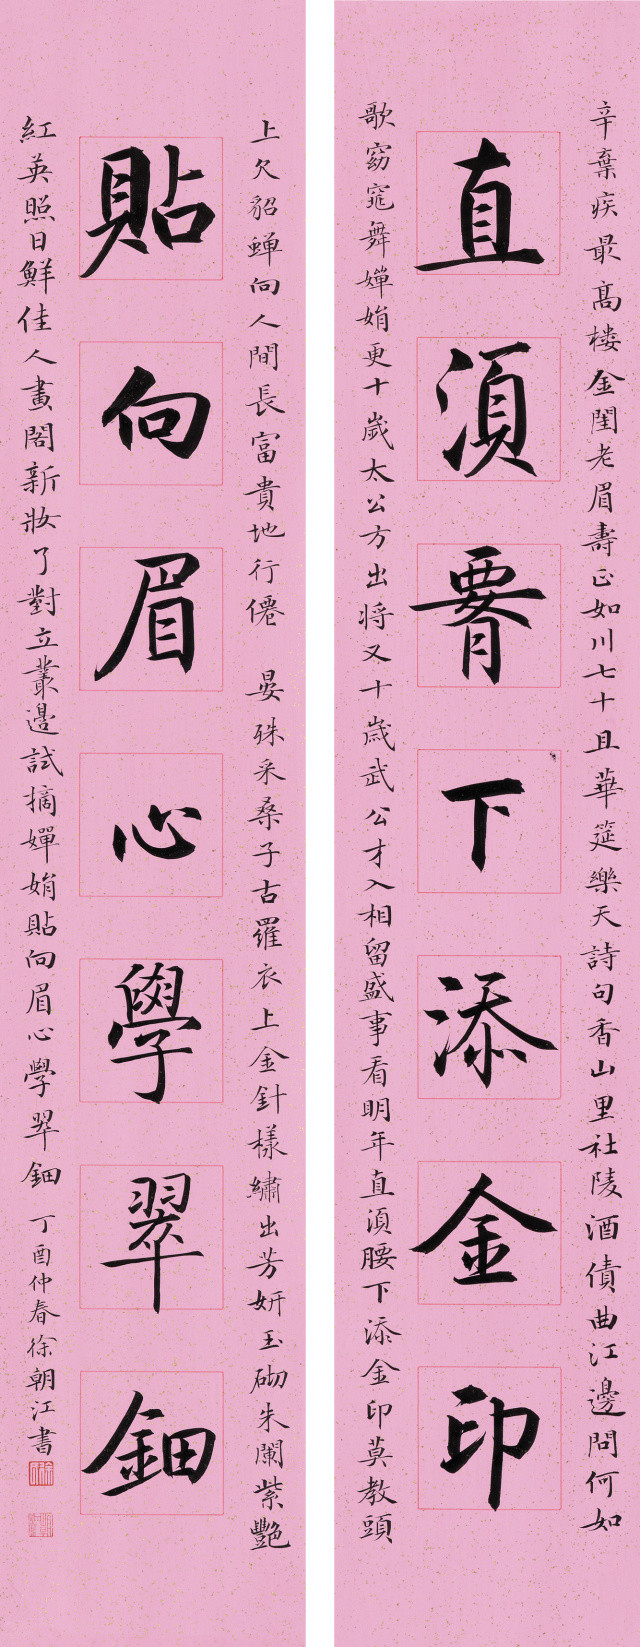 辛棄疾最髙樓金閨老眉壽正如川七十且華筵樂天詩句香山里杜陵酒債曲江邊問何如
直須腰下添金印
歌窈窕舞嬋娟更十歲太公方出將又十歲武公才入相留盛事看明年直須腰下添金印莫教頭
上欠貂蟬向人間長富貴地行僊 晏殊采桑子古羅衣上金針樣繡出芳妍玉砌朱闌紫豔
貼向眉心學翠鈿
紅英照日鮮佳人畫閣新妝了對立叢邊試摘嬋娟貼向眉心學翠鈿 丁酉仲春徐朝江書